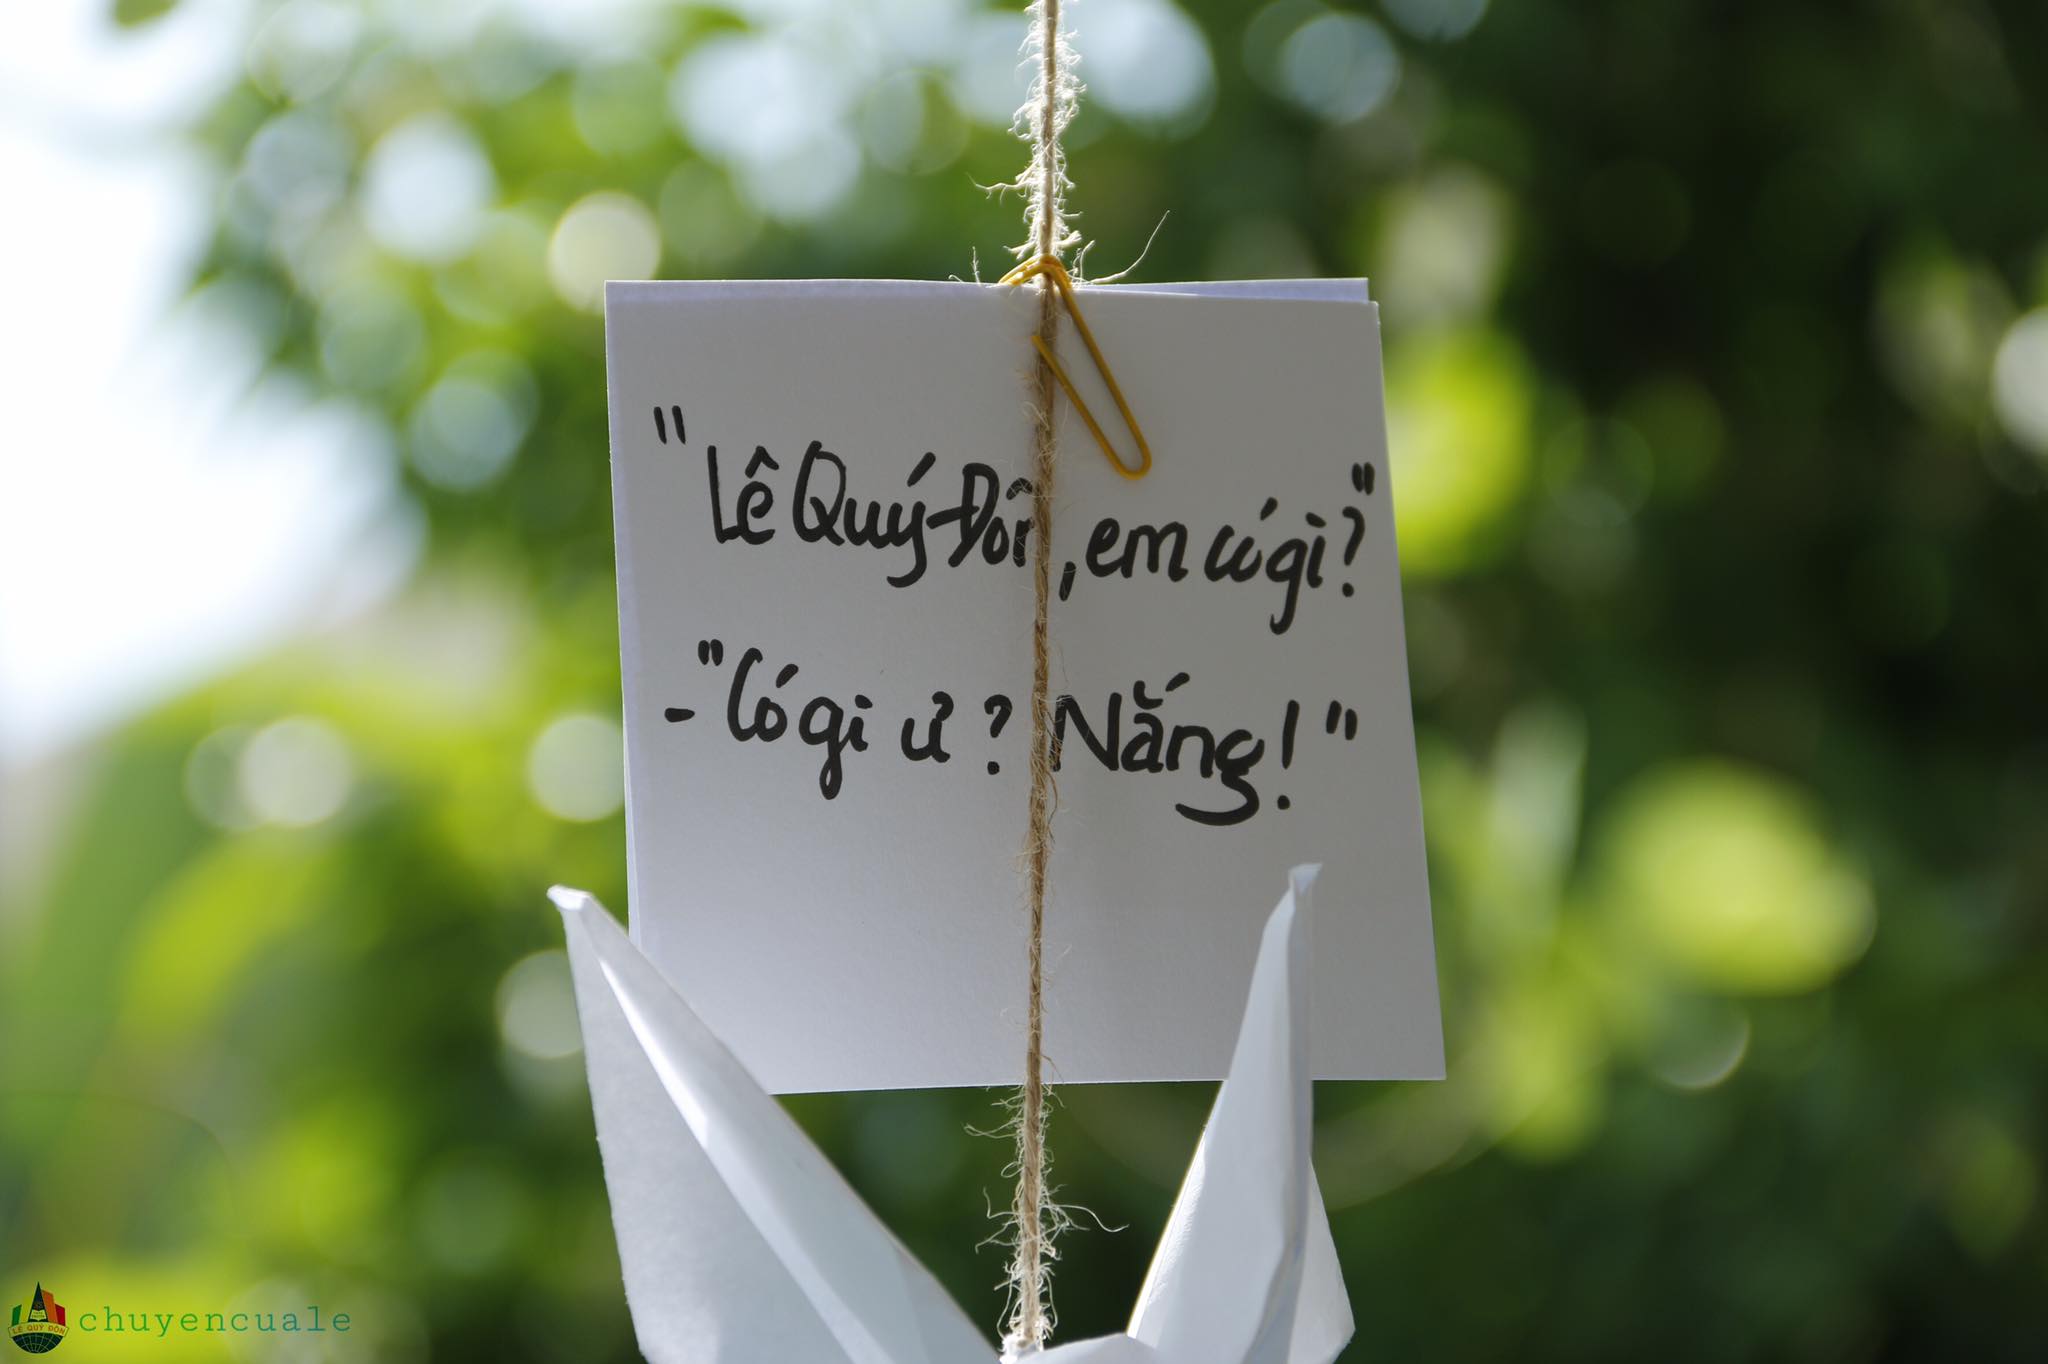 "Lê Quý Đôn, em có gì?"
- "Có gì ư? Nắng!"
LÊ QUÝ ĐÔN
chuyencuale